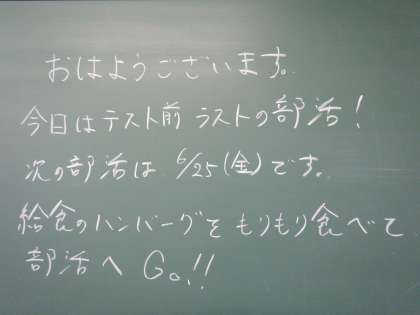 おはようございます。
今日はテスト前 ラストの部活!
次の部活は 6/25(金)です。
給食のハンバーグをもりもり食べて
部活へ Go!!